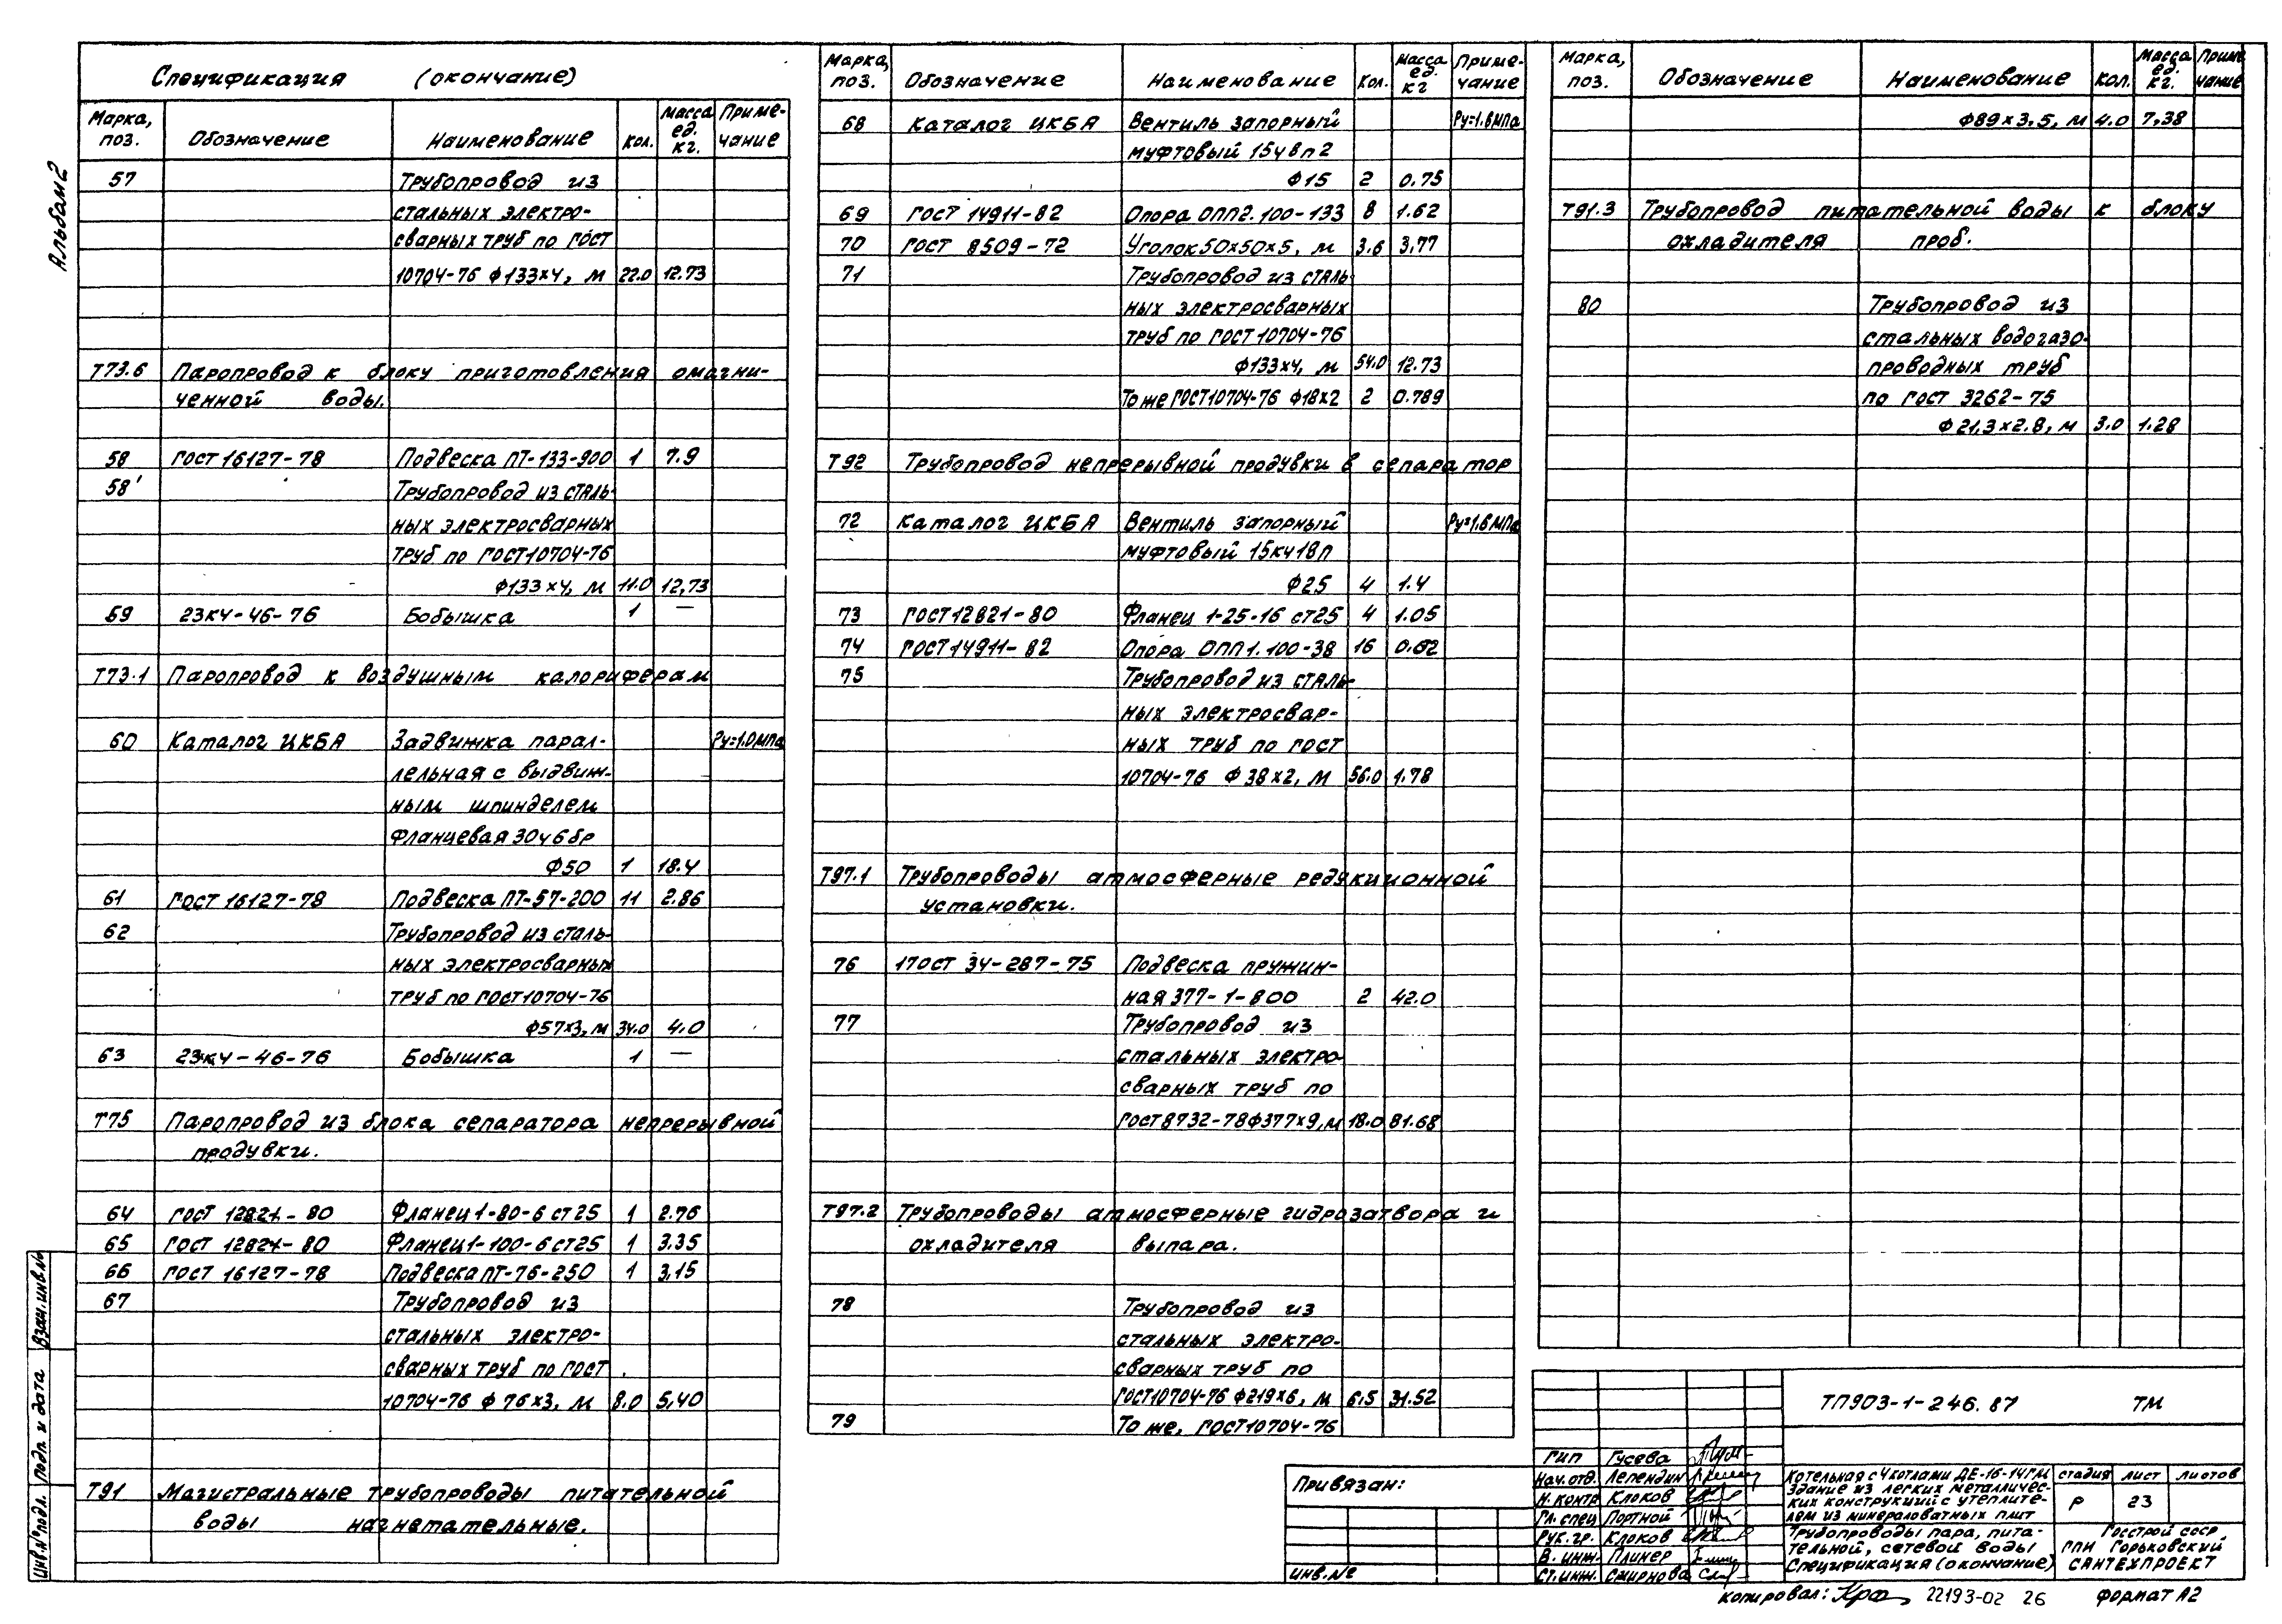 Альбом 2
Спецификация (окончание)
Марка, поз. Обозначение Наименование Кол. Масса ед. кг. Приме-чание
57 Трубопровод из
стальных электро-
сварных труб по ГОСТ
10704-76 Ф133х4, м 22.0 12.73
Т73.6 Паропровод к блоку приготовления омагни-
ченной воды.
58 ГОСТ 16127-78 Подвеска ПТ-133-900 1 7.9
58' Трубопровод из сталь-
ных электросварных
труб по ГОСТ 10704-76
Ф133х4, м 11.0 12,73
59 23кч-46-76 Бобышка 1 —
Т73.1 Паропровод к воздушным калориферам
60 Каталог ЦКБА Задвижка парал- Ру=1.0МПа
лельная с выдвиж-
ным шпинделем
фланцевая 30ч6бр
Ф50 1 18.4
61 ГОСТ 16127-78 Подвеска ПТ-57-200 11 2.86
62 Трубопровод из сталь-
ных электросварных
труб по ГОСТ 10704-76
Ф57х3, м 34.0 4.0
63 23кч-46-76 Бобышка 1 —
Т75 Паропровод из блока сепаратора непрерывной
продувки.
64 ГОСТ 12821-80 Фланец 1-80-6 ст25 1 2.76
65 ГОСТ 12821-80 Фланец 1-100-6 ст25 1 3.35
66 ГОСТ 16127-78 Подвеска ПТ-76-250 1 3,15
67 Трубопровод из
стальных электро-
сварных труб по ГОСТ
10704-76 Ф 76х3, м 8.0 5,40
Т91 Магистральные трубопроводы питательной
воды нагнетательные.
Марка, поз. Обозначение Наименование Кол. Масса ед. кг Приме-чание
68 Каталог ЦКБА Вентиль запорный Ру=1.6МПа
муфтовый 15ч8п2
Ф15 2 0.75
69 ГОСТ 14911-82 Опора ОПП2.100-133 8 1.62
70 ГОСТ 8509-72 Уголок 50х50х5, м 3.6 3,77
71 Трубопровод из сталь-
ных электросварных
труб по ГОСТ 10704-76
Ф133х4, м 54.0 12.73
То же ГОСТ10704-76 Ф18х2 2 0.789
Т92 Трубопровод непрерывной продувки в сепаратор
72 Каталог ЦКБА Вентиль запорный Ру=1.6МПа
муфтовый 15кч18п
Ф25 4 1.4
73 ГОСТ 12821-80 Фланец 1-25-16 ст25 4 1.05
74 ГОСТ 14911-82 Опора ОПП1.100-38 16 0.62
75 Трубопровод из сталь-
ных электросвар-
ных труб по ГОСТ
10704-76 Ф 38х2, м 56.0 1.78
Т97.1 Трубопроводы атмосферные редукционной
установки.
76 17ОСТ 34-287-75 Подвеска пружин-
ная 377-1-800 2 42.0
77 Трубопровод из
стальных электро-
сварных труб по
ГОСТ 8732-78 Ф377х9, м 18.0 81.68
Т97.2 Трубопроводы атмосферные гидрозатвора и
охладителя выпара.
78 Трубопровод из
стальных электро-
сварных труб по
ГОСТ10704-76 Ф219х6, м 6,5 31.52
79 То же, ГОСТ10704-76
Марка, поз. Обозначение Наименование Кол. Масса ед. кг. Приме-чание
Ф89х3,5, м 4.0 7,38
Т91.3 Трубопровод питательной воды к блоку
охладителя проб.
80 Трубопровод из
стальных водогазо-
проводных труб
по ГОСТ 3262-75
Ф 21,3х2.8, м 3.0 1.28
ТП903-1-246.87 ТМ
ГИП Гусева
Нач.отд. Лепендин
Н.контр Клоков
Гл.спец Портной
Рук.гр. Клоков
В.инж. Плинер
Ст.инж. Смирнова
Котельная с 4 котлами ДЕ-16-14ГМ
Здание из легких металличес-
ких конструкций с утеплите-
лем из минераловатных плит
стадия лист листов
Р 23
Трубопроводы пара, пита-
тельной, сетевой воды
Спецификация (окончание)
Госстрой СССР
ГПИ Горьковский
САНТЕХПРОЕКТ
Привязан:
Инв.№
Взам.инв.№
Подп. и дата
Инв.№ подл.
Копировал: 22193-02 26 Формат А2